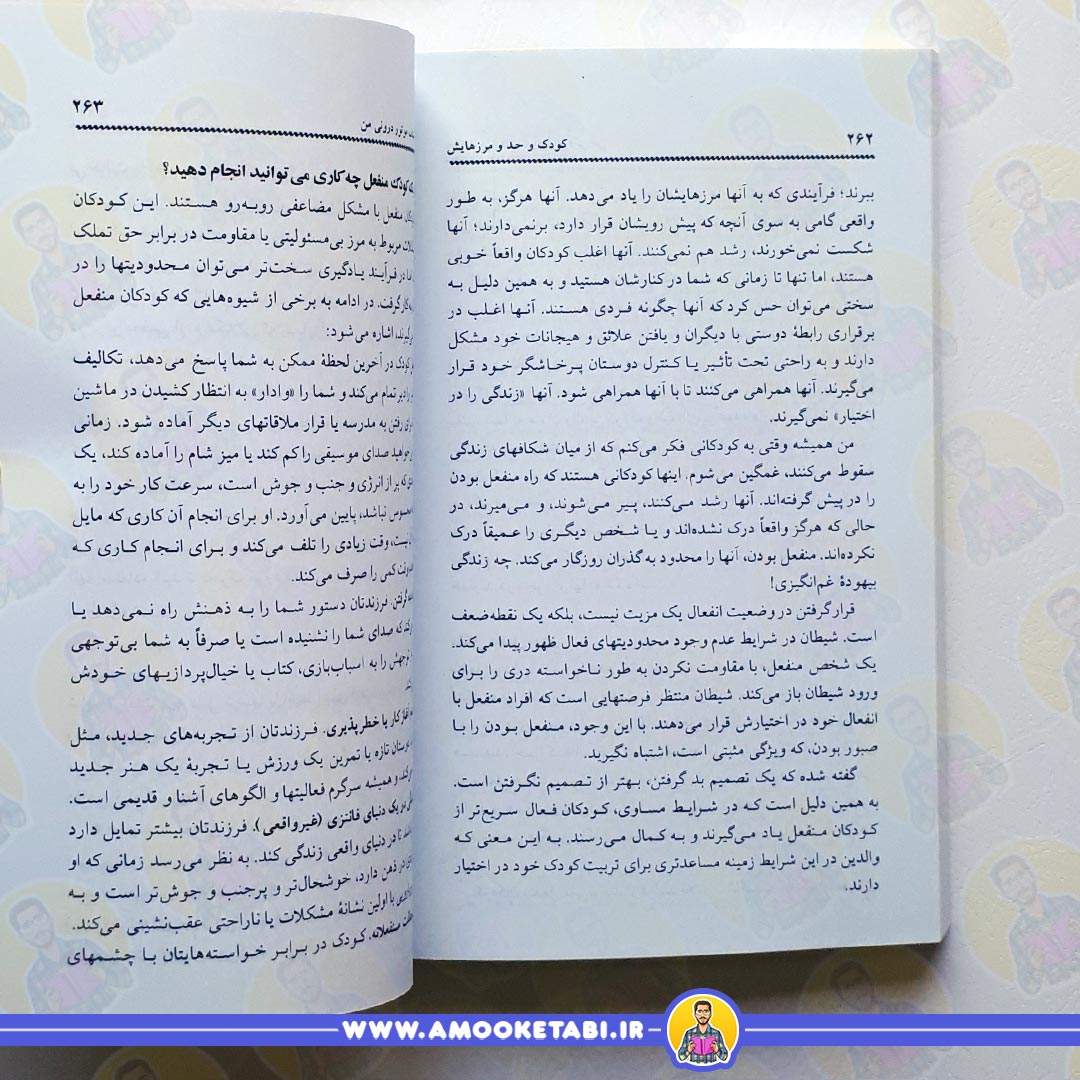 ۲۶۲
کودک و حد و مرزهایش
ببرند؛ فرآیندی که به آنها مرزهایشان را یاد می‌دهد. آنها هرگز، به طور
واقعی گامی به سوی آنچه که پیش رویشان قرار دارد، برنمی‌دارند؛ آنها
شکست نمی‌خورند، رشد هم نمی‌کنند. آنها اغلب کودکان واقعاً خوبی
هستند، اما تنها تا زمانی که شما در کنارشان هستید و به همین دلیل به
سختی می‌توان حس کرد که آنها چگونه فردی هستند. آنها اغلب در
برقراری رابطهٔ دوستی با دیگران و یافتن علائق و هیجانات خود مشکل
دارند و به راحتی تحت تأثیر یا کنترل دوستان پرخاشگر خود قرار
می‌گیرند. آنها همراهی می‌کنند تا با آنها همراهی شود. آنها «زندگی را در
اختیار» نمی‌گیرند.
من همیشه وقتی به کودکانی فکر می‌کنم که از میان شکافهای زندگی
سقوط می‌کنند، غمگین می‌شوم. اینها کودکانی هستند که راه منفعل بودن
را در پیش گرفته‌اند. آنها رشد می‌کنند، پیر می‌شوند، و می‌میرند، در
حالی که هرگز واقعاً درک نشده‌اند و یا شخص دیگری را عمیقاً درک
نکرده‌اند. منفعل بودن، آنها را محدود به گذران روزگار می‌کند. چه زندگی
بیهودهٔ غم‌انگیزی!
قرار گرفتن در وضعیت انفعال یک مزیت نیست، بلکه یک نقطه‌ضعف
است. شیطان در شرایط عدم وجود محدودیتهای فعال ظهور پیدا می‌کند.
یک شخص منفعل، با مقاومت نکردن به طور ناخواسته دری را برای
ورود شیطان باز می‌کند. شیطان منتظر فرصتهایی است که افراد منفعل با
انفعال خود در اختیارش قرار می‌دهند. با این وجود، منفعل بودن را با
صبور بودن، که ویژگی مثبتی است، اشتباه نگیرید.
گفته شده که یک تصمیم بد گرفتن، بهتر از تصمیم نگرفتن است.
به همین دلیل است که در شرایط مساوی، کودکان فعال سریع‌تر از
کودکان منفعل یاد می‌گیرند و به کمال می‌رسند. به این معنی که
والدین در این شرایط زمینه مساعدتری برای تربیت کودک خود در اختیار
دارند.
درونی من
۲۶۳
کودک منفعل چه کاری می‌توانید انجام دهید؟
منفعل با مشکل مضاعفی روبه‌رو هستند. این کودکان
مربوط به مرز بی‌مسئولیتی یا مقاومت در برابر حق تملک
در فرآیند یادگیری سخت‌تر می‌توان محدودیتها را در
گرفت. در ادامه به برخی از شیوه‌هایی که کودکان منفعل
اشاره می‌شود:
کودک در آخرین لحظهٔ ممکن به شما پاسخ می‌دهد، تکالیف
تمام می‌کند و شما را «وادار» به انتظار کشیدن در ماشین
رفتن به مدرسه یا قرار ملاقاتهای دیگر آماده شود. زمانی
صدای موسیقی را کم کند یا میز شام را آماده کند، یک
پر از انرژی و جنب و جوش است، سرعت کار خود را به
پایین می‌آورد. او برای انجام آن کاری که مایل
وقت زیادی را تلف می‌کند و برای انجام کاری که
وقت کمی را صرف می‌کند.
گرفتن. فرزندتان دستور شما را به ذهنش راه نمی‌دهد یا
که صدای شما را نشنیده است یا صرفاً به شما بی‌توجهی
توجهش را به اسباب‌بازی، کتاب یا خیال‌پردازیهای خودش
کار یا خطرپذیری. فرزندتان از تجربه‌های جدید، مثل
تازه یا تمرین یک ورزش یا تجربهٔ یک هنر جدید
و همیشه سرگرم فعالیتها و الگوهای آشنا و قدیمی است.
در یک دنیای فانتزی (غیرواقعی). فرزندتان بیشتر تمایل دارد
تا در دنیای واقعی زندگی کند. به نظر می‌رسد زمانی که او
در ذهن دارد، خوشحال‌تر و پرجنب و جوش‌تر است و به
با اولین نشانهٔ مشکلات یا ناراحتی عقب‌نشینی می‌کند.
منفعلانه. کودک در برابر خواسته‌هایتان با چشمهای
WWW.AMOOKETABI.IR